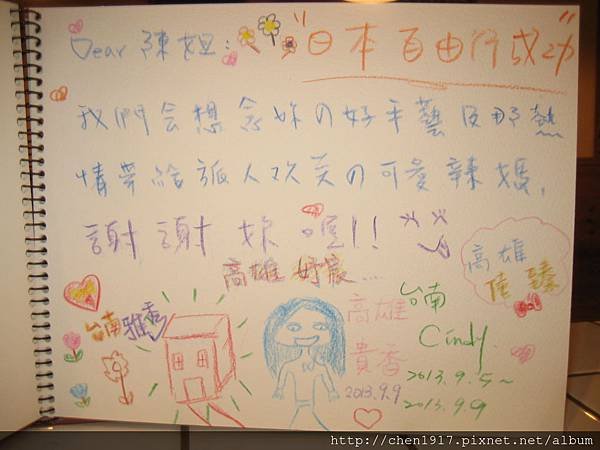 Dear 陳姐:
"日本自由行成功"
我們会想念妳の好手藝及那熱
情帶給旅人歡笑の可愛辣媽,
謝謝妳喔!!
高雄
高雄
台南雅秀
高雄
貴香
2013.9.9
台南
Cindy.
2013.9.5~
2013.9.9
http://chen1917.pixnet.net/album